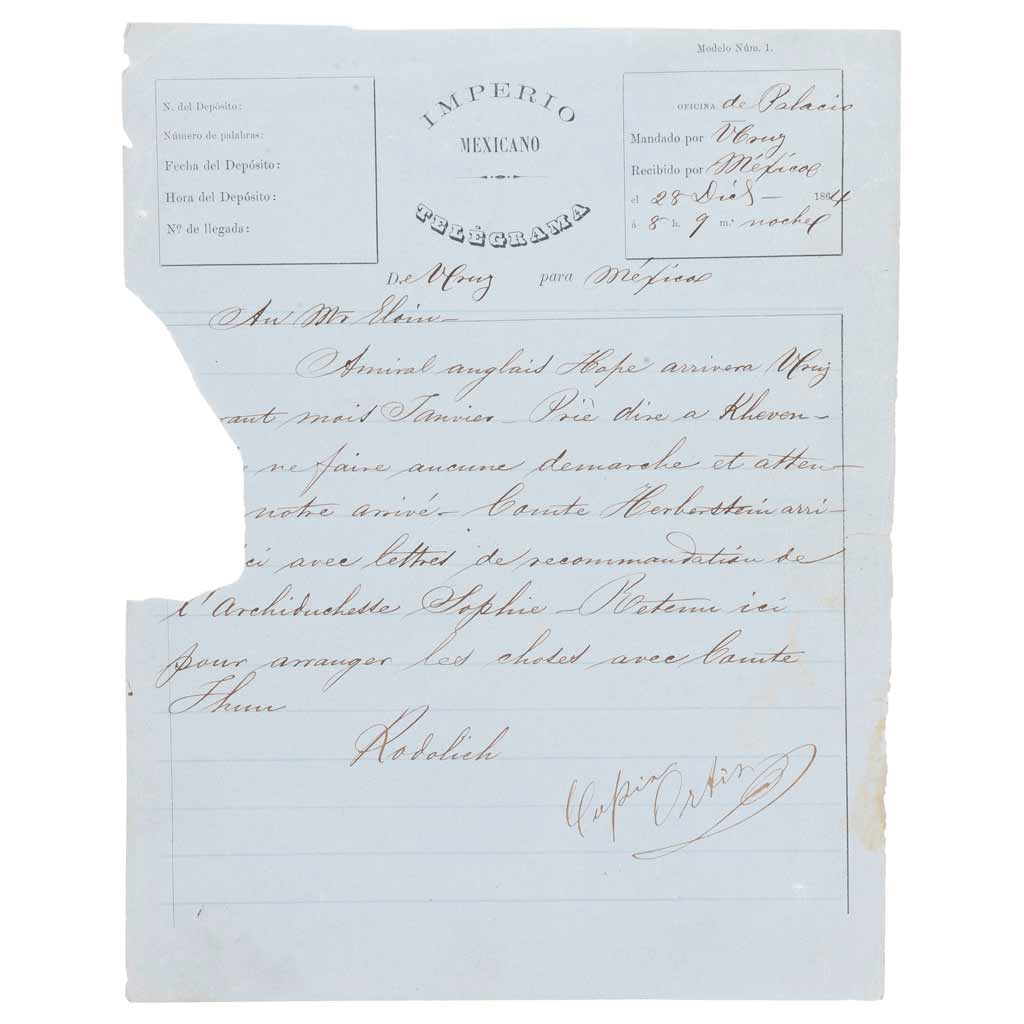 Modelo Núm. 1.
N. del Depósito:
Número de palabras:
Fecha del Depósito:
Hora del Depósito:
Nº de llegada:
IMPERIO
MEXICANO
TELÉGRAMA
OFICINA de Palacio
Mandado por VCruz
Recibido por México
el 28 Dic 1864
á 8 h. 9 m. noche
De VCruz para México
Au Mr Eloin
Amiral anglais Hope arrivera VCruz
rant mois Janvier - Priè dire a Kheven-
ne faire aucune demarche et atten-
notre arrivé - Comte Herberstein arri-
ici avec lettres de recommandation de
l'Archiduchesse Sophie - Retenu ici
pour arranger les choses avec Comte
Thun
Rodolich
Copia Ortiz